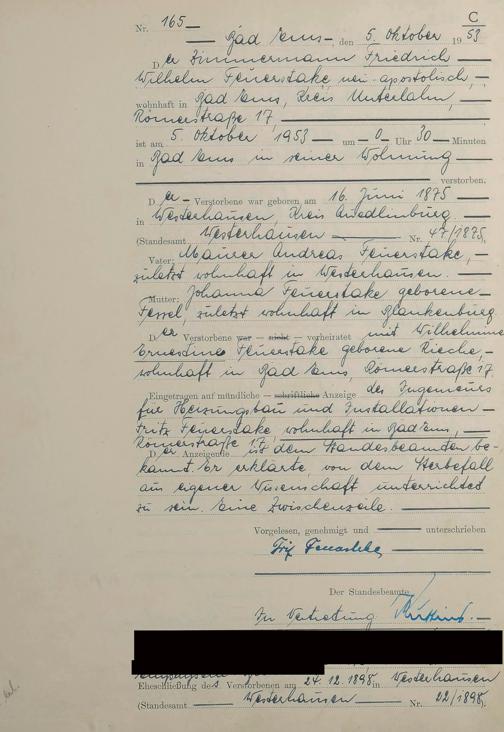 C
Nr. 165
Bad Ems, den 5. Oktober 1953
Der Zimmermann Friedrich
Wilhelm Feuerstake, neu-apostolisch,
wohnhaft in Bad Ems, Kreis Unterlahn,
Römerstraße 17,
ist am 5. Oktober 1953 um 0 Uhr 30 Minuten
in Bad Ems in seiner Wohnung
verstorben.
Der Verstorbene war geboren am 16. Juni 1875
in Westerhausen, Kreis Quedlinburg
(Standesamt Westerhausen Nr. 47/1875).
Vater: Maurer Andreas Feuerstake,
zuletzt wohnhaft in Westerhausen.
Mutter: Johanna Feuerstake geborene
Fessel, zuletzt wohnhaft in Blankenburg
Der Verstorbene war — nicht — verheiratet mit Wilhelmine
Ernestine Feuerstake geborene Rieche,
wohnhaft in Bad Ems, Römerstraße 17.
Eingetragen auf mündliche — schriftliche Anzeige des Ingenieurs
für Heizungsbau und Installationen
Fritz Feuerstake, wohnhaft in Bad Ems,
Römerstraße 17,
Der Anzeigende ist dem Standesbeamten be-
kannt. Er erklärte, von dem Sterbefall
aus eigener Wissenschaft unterrichtet
zu sein. Eine Zwischenzeile.
Vorgelesen, genehmigt und unterschrieben
Fritz Feuerstake
Der Standesbeamte
In Vertretung
Eheschließung des Verstorbenen am 24.12.1898 in Westerhausen
(Standesamt Westerhausen Nr. 22/1898).